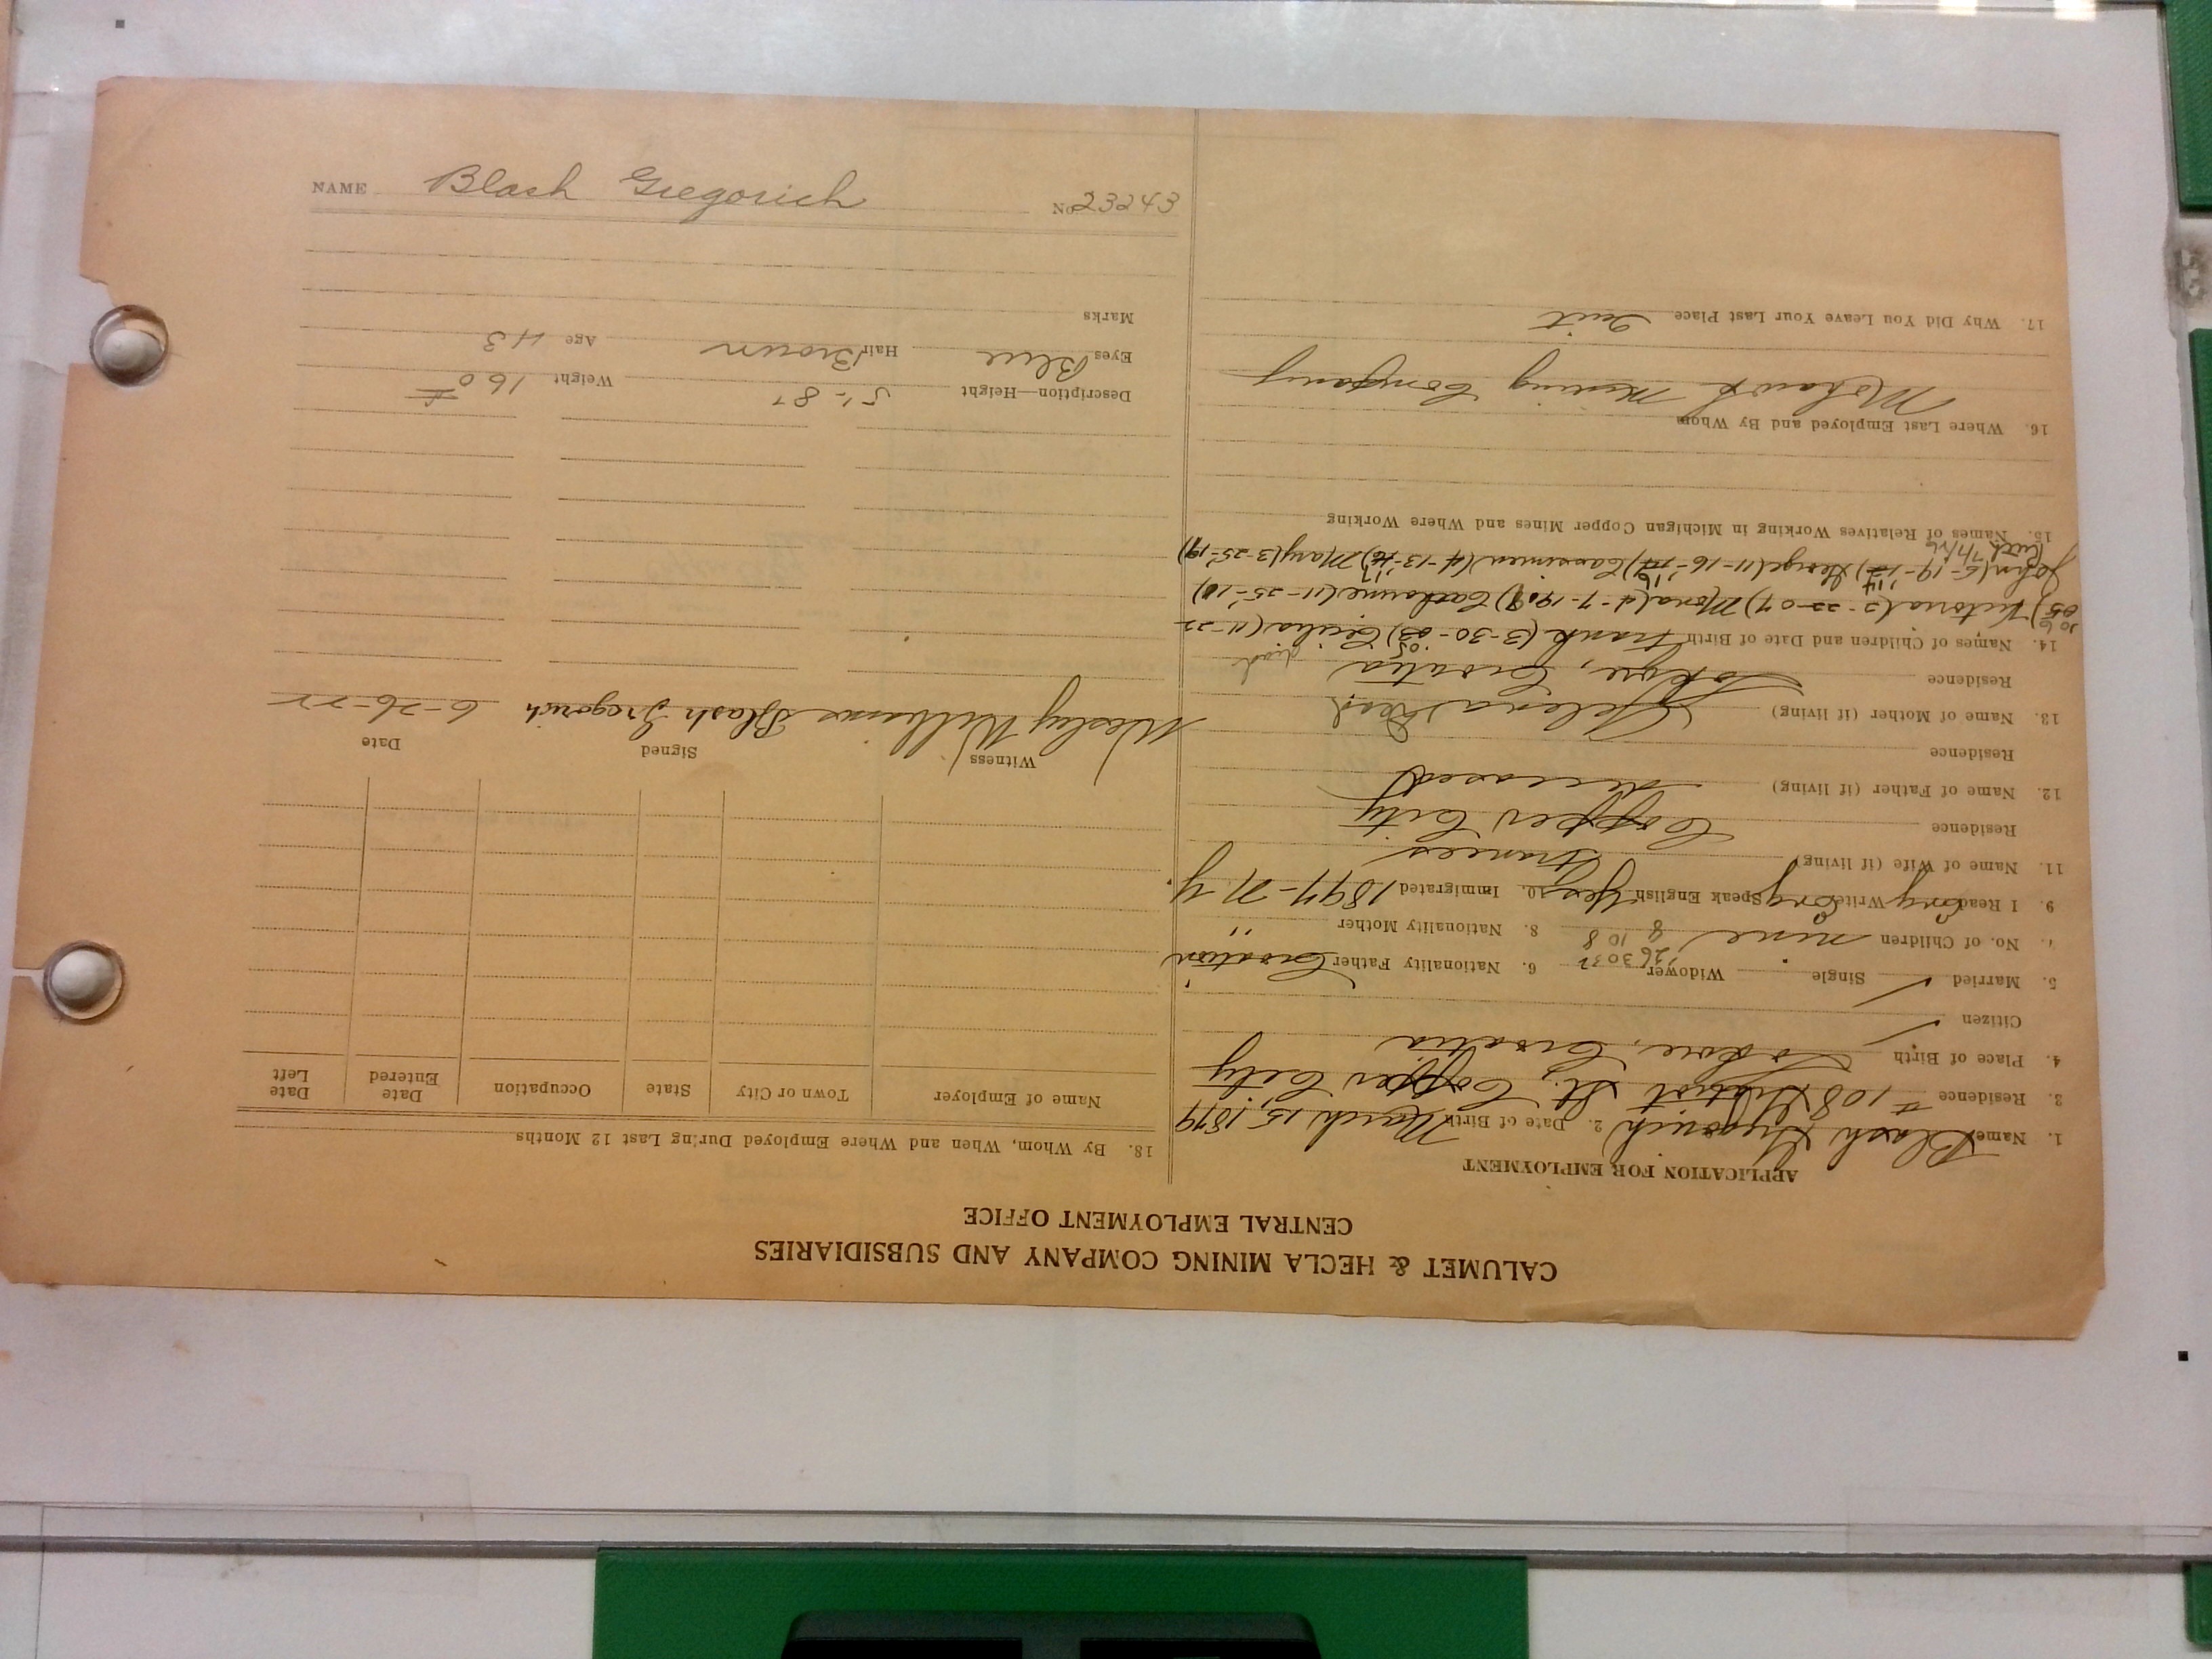 CALUMET & HECLA MINING COMPANY AND SUBSIDIARIES
CENTRAL EMPLOYMENT OFFICE
APPLICATION FOR EMPLOYMENT
1. Name Blash Gregorich 2. Date of Birth March 15, 1879
3. Residence #108 St., Copper City
4. Place of Birth Croatia
Citizen
5. Married Single Widower 6. Nationality Father Croation
7. No. of Children nine 8. Nationality Mother "
9. I Read Eng Write Eng Speak English Yes 10. Immigrated 1897-N.Y.
11. Name of Wife (if living) Frances
Residence Copper City
12. Name of Father (if living) deceased
Residence
13. Name of Mother (if living) Helena Dead
Residence Croatia
14. Names of Children and Date of Birth Frank (3-30-03) Cecilia (11-22
Victoria (2-22-07) Mona (4-7-1909) Catherine (11-25-10)
John (5-19-12) George (11-16-14) (4-13-16) Mary (3-25-19)
15. Names of Relatives Working in Michigan Copper Mines and Where Working
16. Where Last Employed and By Whom
Mohawk Mining Company
17. Why Did You Leave Your Last Place Quit
18. By Whom, When and Where Employed During Last 12 Months
Name of Employer Town or City State Occupation Date Entered Date Left
Witness Signed Date
Wesley Williams Blash Gregorich 6-26-22
Description—Height 5'-8" Weight 160 #
Eyes Blue Hair Brown Age 43
Marks
NAME Blash Gregorich No. 23243